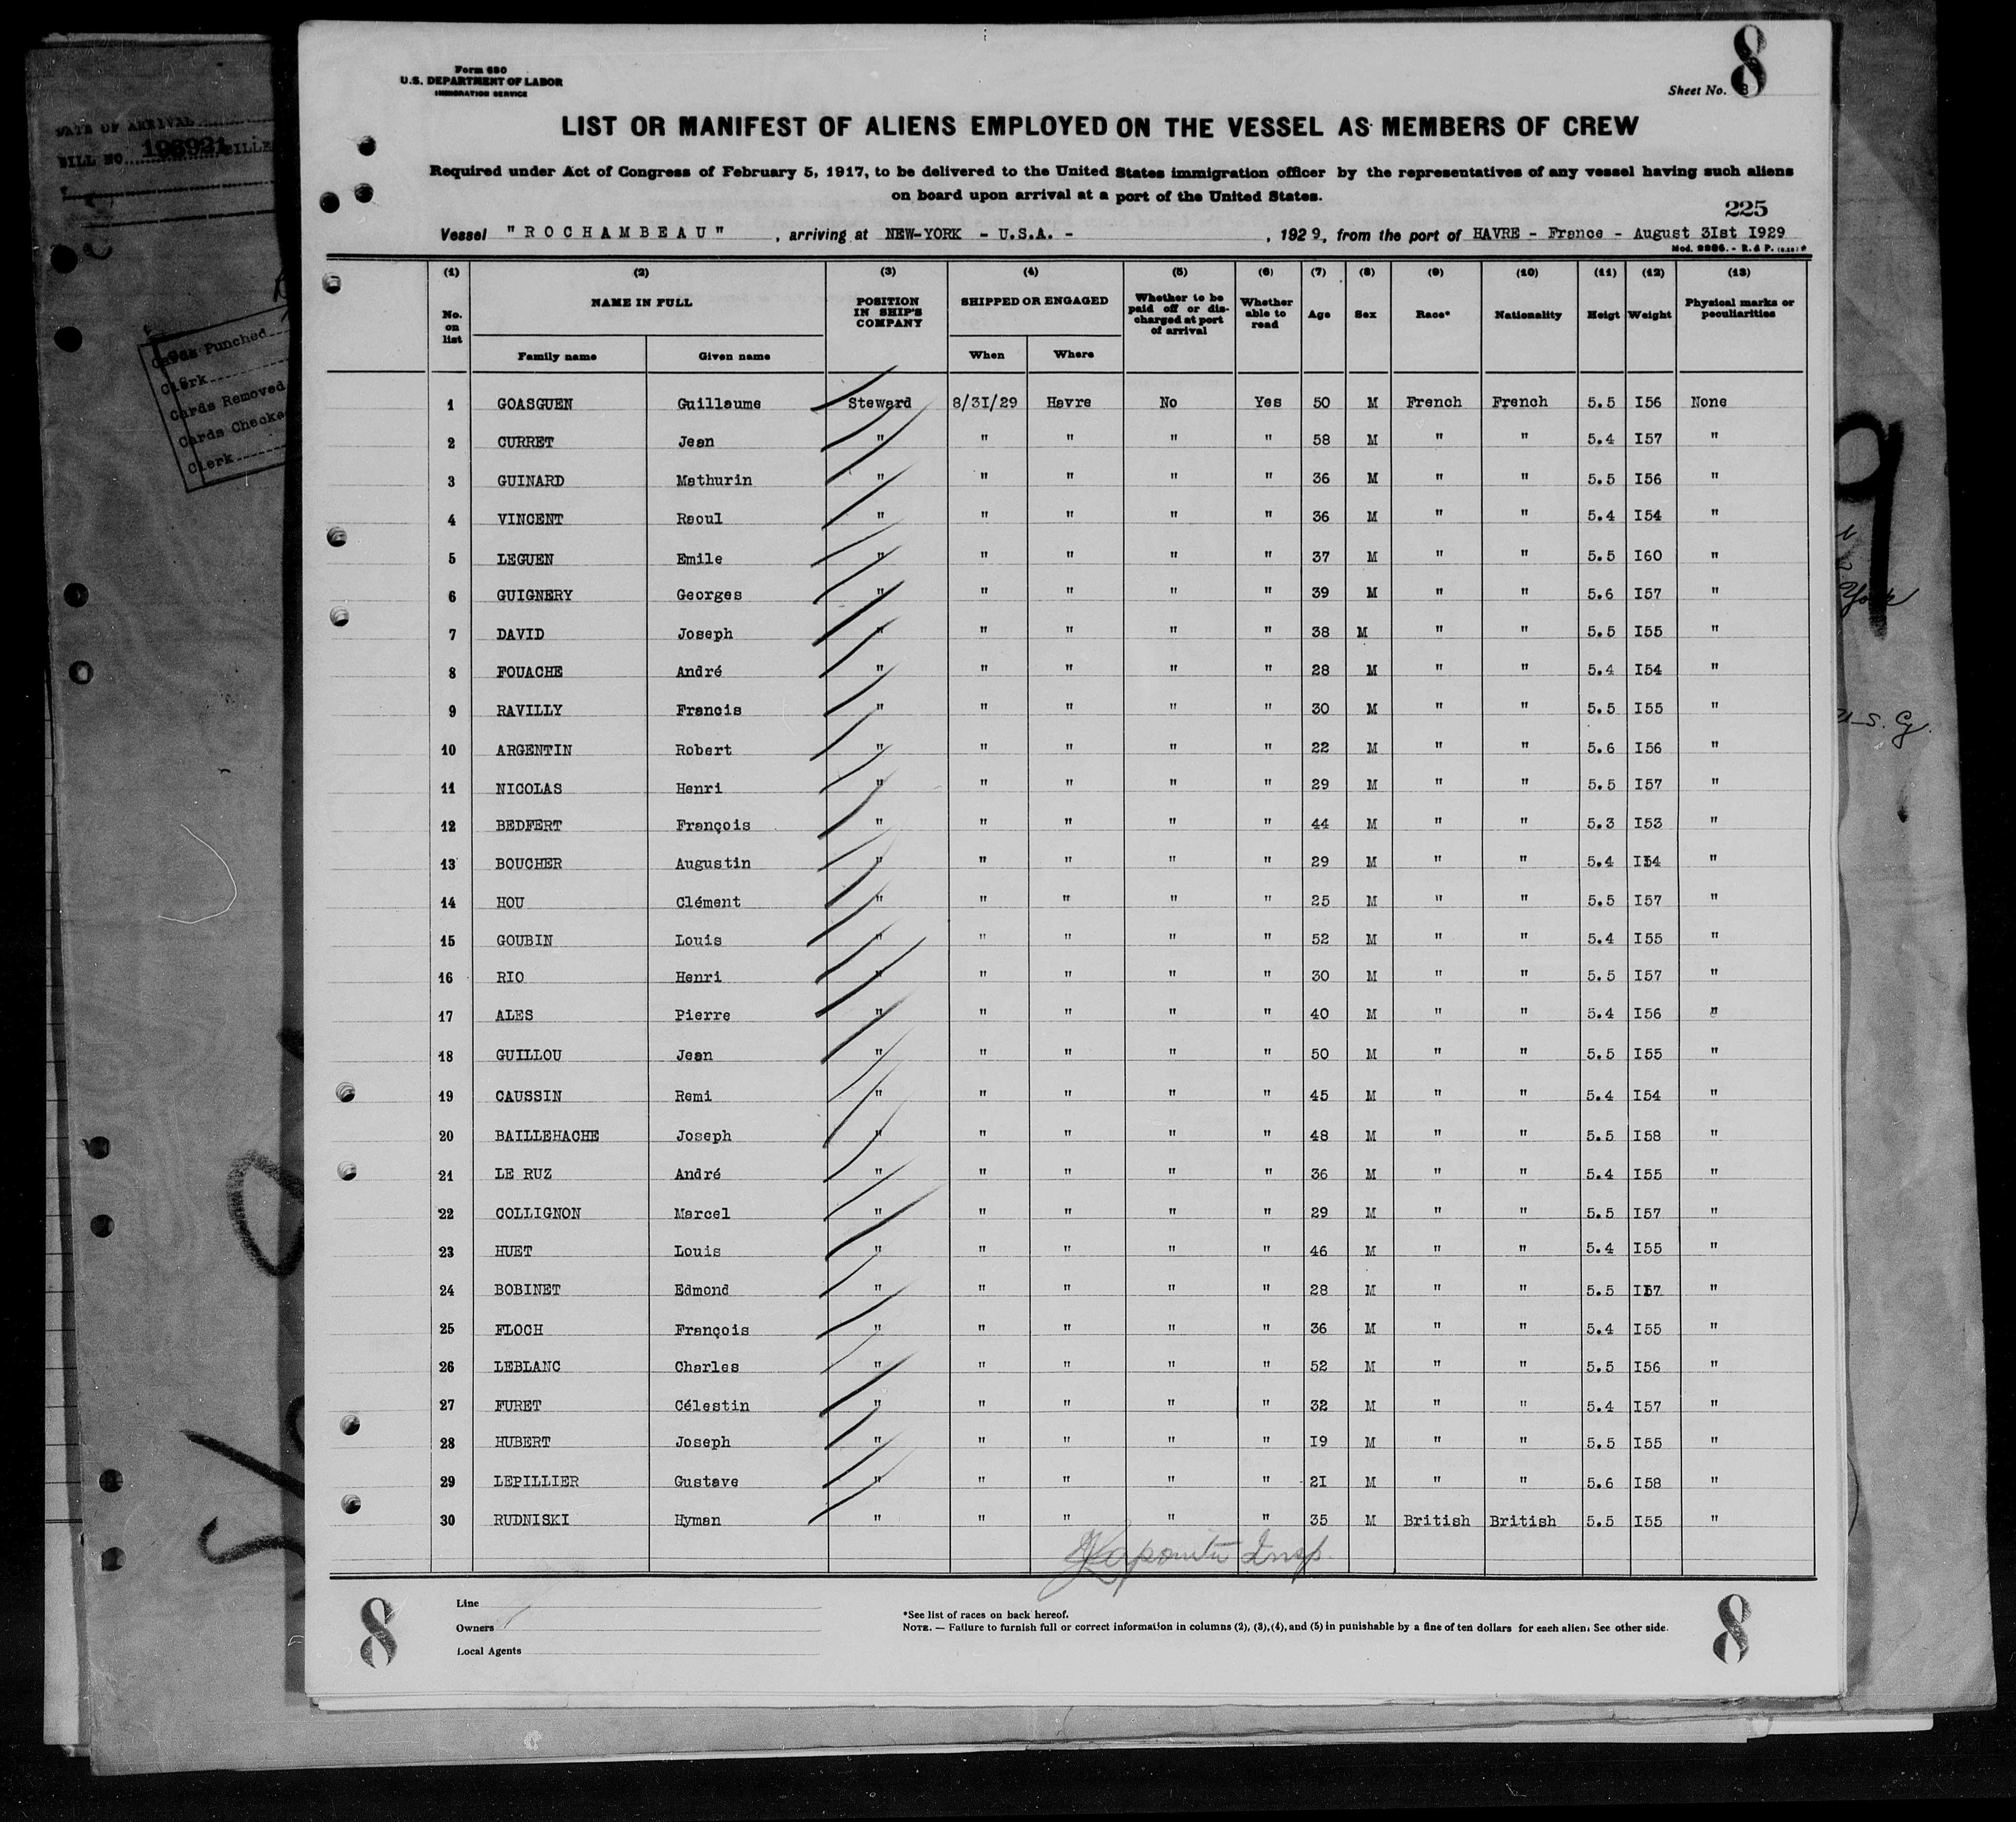 8
Form 680
U.S. DEPARTMENT OF LABOR
IMMIGRATION SERVICE
Sheet No. 8
LIST OR MANIFEST OF ALIENS EMPLOYED ON THE VESSEL AS MEMBERS OF CREW
Required under Act of Congress of February 5, 1917, to be delivered to the United States immigration officer by the representatives of any vessel having such aliens
on board upon arrival at a port of the United States.
225
Vessel "ROCHAMBEAU" , arriving at NEW-YORK - U.S.A. - , 1929, from the port of HAVRE - France - August 3Ist I929
DATE OF ARRIVAL
BILL NO.
Cards Punched
Clerk
Cards Removed
Cards Checke
Clerk
(1) (2) (3) (4) (5) (6) (7) (8) (9) (10) (11) (12) (13)
No. on list NAME IN FULL POSITION IN SHIP'S COMPANY SHIPPED OR ENGAGED Whether to be paid off or discharged at port of arrival Whether able to read Age Sex Race* Nationality Heigt Weight Physical marks or peculiarities
Family name Given name When Where
1 GOASGUEN Guillaume Steward 8/3I/29 Havre No Yes 50 M French French 5.5 I56 None
2 CURRET Jean " " " " " 58 M " " 5.4 I57 "
3 GUINARD Mathurin " " " " " 36 M " " 5.5 I56 "
4 VINCENT Raoul " " " " " 36 M " " 5.4 I54 "
5 LEGUEN Emile " " " " " 37 M " " 5.5 I60 "
6 GUIGNERY Georges " " " " " 39 M " " 5.6 I57 "
7 DAVID Joseph " " " " " 38 M " " 5.5 I55 "
8 FOUACHE André " " " " " 28 M " " 5.4 I54 "
9 RAVILLY Francis " " " " " 30 M " " 5.5 I55 "
10 ARGENTIN Robert " " " " " 22 M " " 5.6 I56 "
11 NICOLAS Henri " " " " " 29 M " " 5.5 I57 "
12 BEDFERT François " " " " " 44 M " " 5.3 I53 "
13 BOUCHER Augustin " " " " " 29 M " " 5.4 I54 "
14 HOU Clément " " " " " 25 M " " 5.5 I57 "
15 GOUBIN Louis " " " " " 52 M " " 5.4 I55 "
16 RIO Henri " " " " " 30 M " " 5.5 I57 "
17 ALES Pierre " " " " " 40 M " " 5.4 I56 "
18 GUILLOU Jean " " " " " 50 M " " 5.5 I55 "
19 CAUSSIN Remi " " " " " 45 M " " 5.4 I54 "
20 BAILLEHACHE Joseph " " " " " 48 M " " 5.5 I58 "
21 LE RUZ André " " " " " 36 M " " 5.4 I55 "
22 COLLIGNON Marcel " " " " " 29 M " " 5.5 I57 "
23 HUET Louis " " " " " 46 M " " 5.4 I55 "
24 BOBINET Edmond " " " " " 28 M " " 5.5 I57 "
25 FLOCH François " " " " " 36 M " " 5.4 I55 "
26 LEBLANC Charles " " " " " 52 M " " 5.5 I56 "
27 FURET Célestin " " " " " 32 M " " 5.4 I57 "
28 HUBERT Joseph " " " " " I9 M " " 5.5 I55 "
29 LEPILLIER Gustave " " " " " 2I M " " 5.6 I58 "
30 RUDNISKI Hyman " " " " " 35 M British British 5.5 I55 "
Insp.
Line
Owners
Local Agents
*See list of races on back hereof.
NOTE. — Failure to furnish full or correct information in columns (2), (3), (4), and (5) in punishable by a fine of ten dollars for each alien. See other side.
8 8
9
York